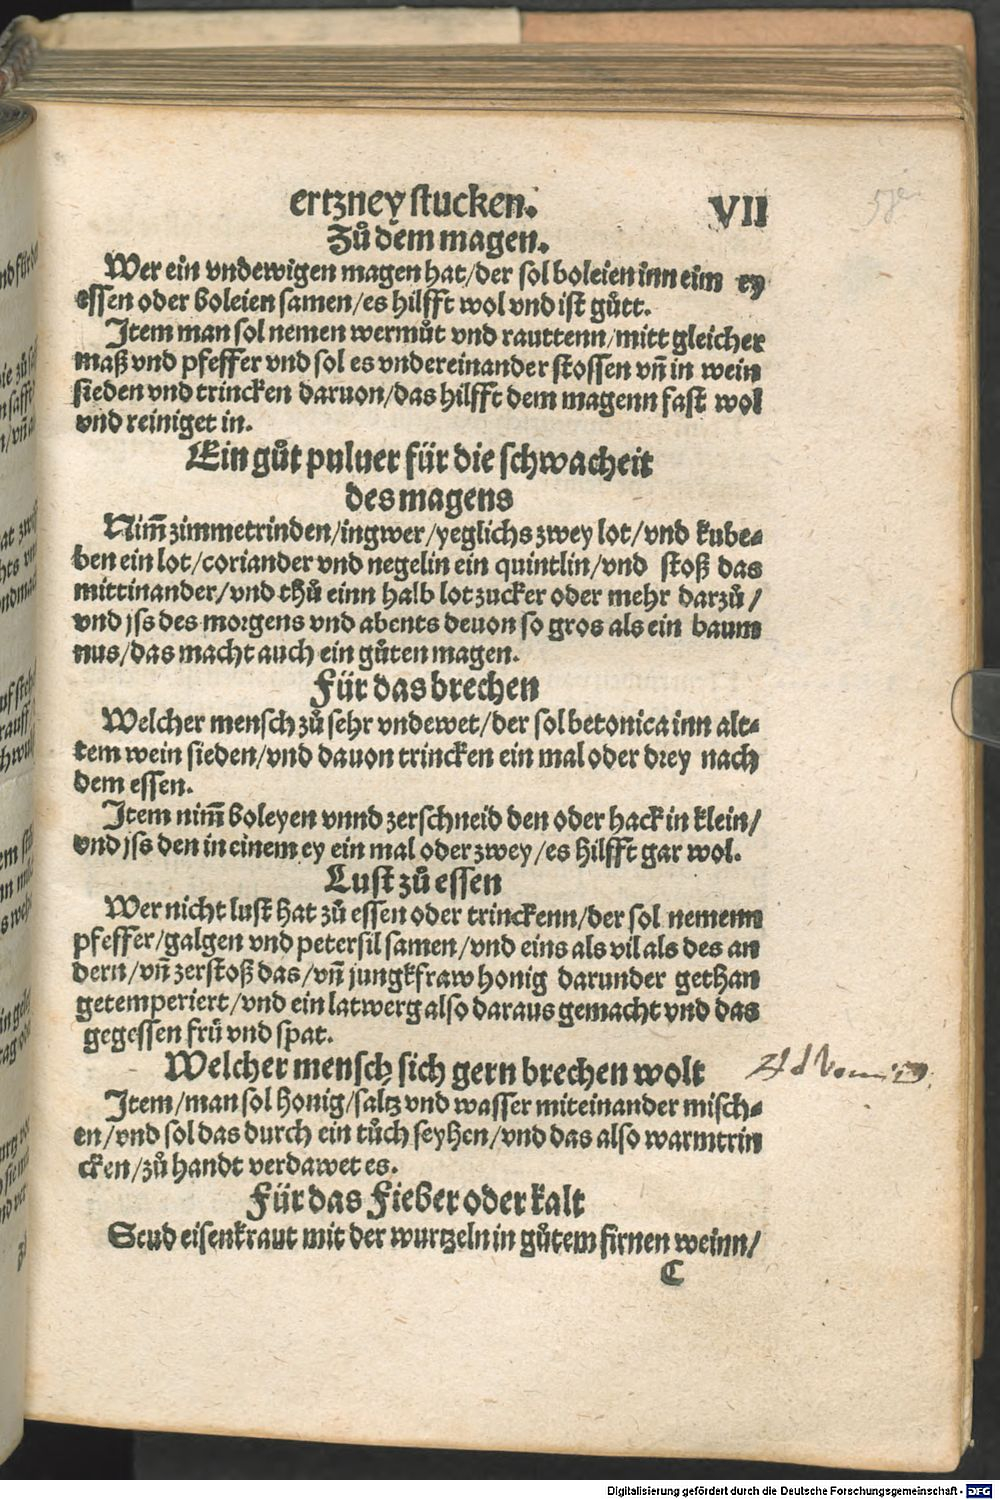 ertzney stucken. VII
Zů dem magen.
Wer ein vndewigen magen hat/der sol boleien inn eim ey
essen oder boleien samen/es hilfft wol vnd ist gůtt.
Item man sol nemen wermůt vnd rauttenn/mitt gleicher
maß vnd pfeffer vnd sol es vndereinander stossen vñ in wein
sieden vnd trincken daruon/das hilfft dem magenn fast wol
vnd reiniget in.
Ein gůt puluer für die schwacheit
des magens
Nim̃ zimmetrinden/ingwer/yeglichs zwey lot/vnd kube-
ben ein lot/coriander vnd negelin ein quintlin/vnd stoß das
mittinander/vnd thů einn halb lot zucker oder mehr darzů/
vnd jss des morgens vnd abents deuon so gros als ein baum
nus/das macht auch ein gůten magen.
Für das brechen
Welcher mensch zů sehr vndewet/der sol betonica inn alt-
tem wein sieden/vnd dauon trincken ein mal oder drey nach
dem essen.
Item nim̃ boleyen vnnd zerschneid den oder hack in klein/
vnd jss den in einem ey ein mal oder zwey/es hilfft gar wol.
Lust zů essen
Wer nicht lust hat zů essen oder trinckenn/der sol nemenn
pfeffer/galgen vnd petersil samen/vnd eins als vil als des an
dern/vñ zerstoß das/vñ jungkfraw honig darunder gethan
getemperiert/vnd ein latwerg also daraus gemacht vnd das
gegessen frü vnd spat.
Welcher mensch sich gern brechen wolt
Item/man sol honig/saltz vnd wasser miteinander misch-
en/vnd sol das durch ein tůch seyhen/vnd das also warm trin
cken/zů handt verdawet es.
Für das Fieber oder kalt
Seud eisenkraut mit der wurtzeln in gůtem firnen weinn/
C
Digitalisierung gefördert durch die Deutsche Forschungsgemeinschaft - DFG